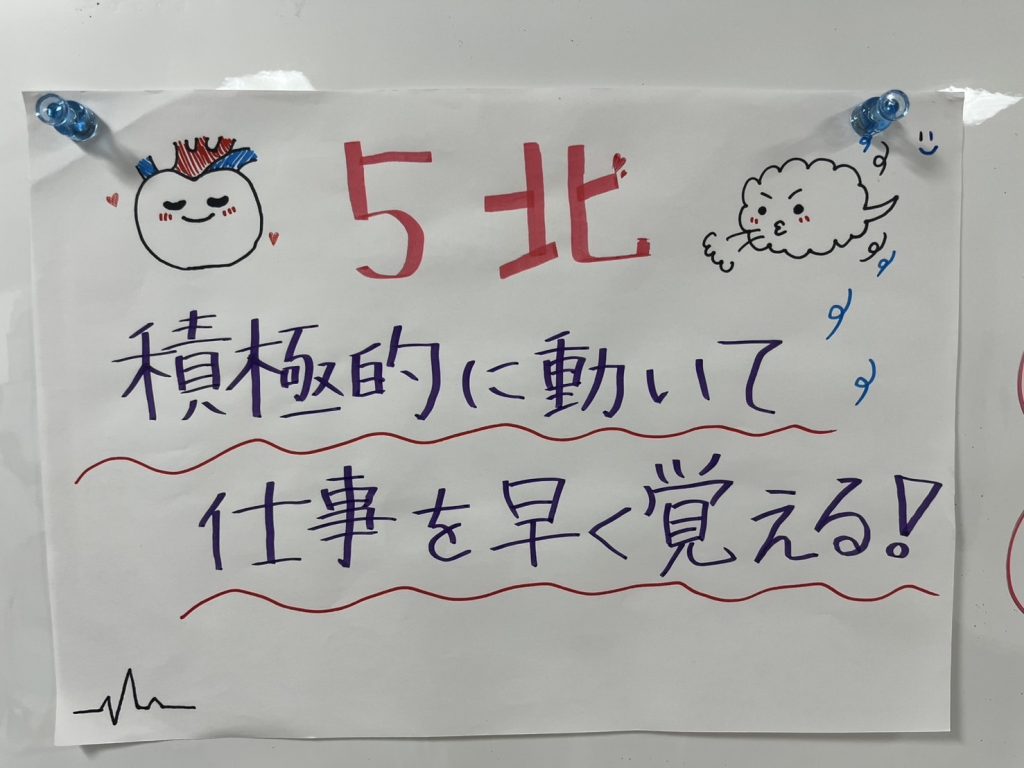 5北
積極的に動いて
仕事を早く覚える!